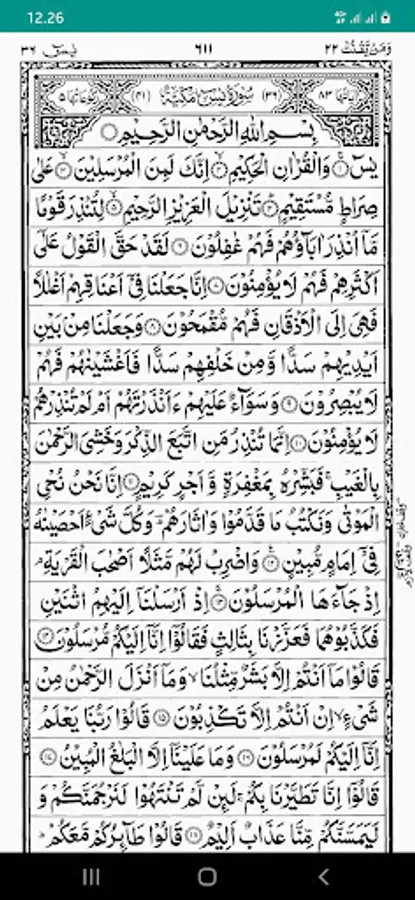 12.26
وَمَنْ يَّقْنُتْ ٢٢ ٦١١ يٰسٓ ٣٦
اٰيَاتُهَا ٨٣ (٣٦) سُوْرَةُ يٰسٓ مَكِّيَّةٌ (٤١) رُكُوْعَاتُهَا ٥
بِسْمِ اللهِ الرَّحْمٰنِ الرَّحِيْمِ
يٰسٓ ۝١ وَالْقُرْاٰنِ الْحَكِيْمِ ۝٢ اِنَّكَ لَمِنَ الْمُرْسَلِيْنَ ۝٣ عَلٰى
صِرَاطٍ مُّسْتَقِيْمٍ ۝٤ تَنْزِيْلَ الْعَزِيْزِ الرَّحِيْمِ ۝٥ لِتُنْذِرَ قَوْمًا
مَّآ اُنْذِرَ اٰبَآؤُهُمْ فَهُمْ غٰفِلُوْنَ ۝٦ لَقَدْ حَقَّ الْقَوْلُ عَلٰٓى
اَكْثَرِهِمْ فَهُمْ لَا يُؤْمِنُوْنَ ۝٧ اِنَّا جَعَلْنَا فِيْٓ اَعْنَاقِهِمْ اَغْلٰلًا
فَهِيَ اِلَى الْاَذْقَانِ فَهُمْ مُّقْمَحُوْنَ ۝٨ وَجَعَلْنَا مِنْۢ بَيْنِ
اَيْدِيْهِمْ سَدًّا وَّمِنْ خَلْفِهِمْ سَدًّا فَاَغْشَيْنٰهُمْ فَهُمْ
لَا يُبْصِرُوْنَ ۝٩ وَسَوَآءٌ عَلَيْهِمْ ءَاَنْذَرْتَهُمْ اَمْ لَمْ تُنْذِرْهُمْ
لَا يُؤْمِنُوْنَ ۝١٠ اِنَّمَا تُنْذِرُ مَنِ اتَّبَعَ الذِّكْرَ وَخَشِيَ الرَّحْمٰنَ
بِالْغَيْبِ ۚ فَبَشِّرْهُ بِمَغْفِرَةٍ وَّاَجْرٍ كَرِيْمٍ ۝١١ اِنَّا نَحْنُ نُحْيِ
الْمَوْتٰى وَنَكْتُبُ مَا قَدَّمُوْا وَاٰثَارَهُمْ ۚ وَكُلَّ شَيْءٍ اَحْصَيْنٰهُ
فِيْٓ اِمَامٍ مُّبِيْنٍ ۝١٢ وَاضْرِبْ لَهُمْ مَّثَلًا اَصْحٰبَ الْقَرْيَةِ ۘ
اِذْ جَآءَهَا الْمُرْسَلُوْنَ ۝١٣ اِذْ اَرْسَلْنَآ اِلَيْهِمُ اثْنَيْنِ
فَكَذَّبُوْهُمَا فَعَزَّزْنَا بِثَالِثٍ فَقَالُوْٓا اِنَّآ اِلَيْكُمْ مُّرْسَلُوْنَ ۝١٤
قَالُوْا مَآ اَنْتُمْ اِلَّا بَشَرٌ مِّثْلُنَا ۙ وَمَآ اَنْزَلَ الرَّحْمٰنُ مِنْ
شَيْءٍ ۙ اِنْ اَنْتُمْ اِلَّا تَكْذِبُوْنَ ۝١٥ قَالُوْا رَبُّنَا يَعْلَمُ
اِنَّآ اِلَيْكُمْ لَمُرْسَلُوْنَ ۝١٦ وَمَا عَلَيْنَآ اِلَّا الْبَلٰغُ الْمُبِيْنُ ۝١٧
قَالُوْٓا اِنَّا تَطَيَّرْنَا بِكُمْ ۚ لَئِنْ لَّمْ تَنْتَهُوْا لَنَرْجُمَنَّكُمْ وَ
لَيَمَسَّنَّكُمْ مِّنَّا عَذَابٌ اَلِيْمٌ ۝١٨ قَالُوْا طَآئِرُكُمْ مَّعَكُمْ ۭ